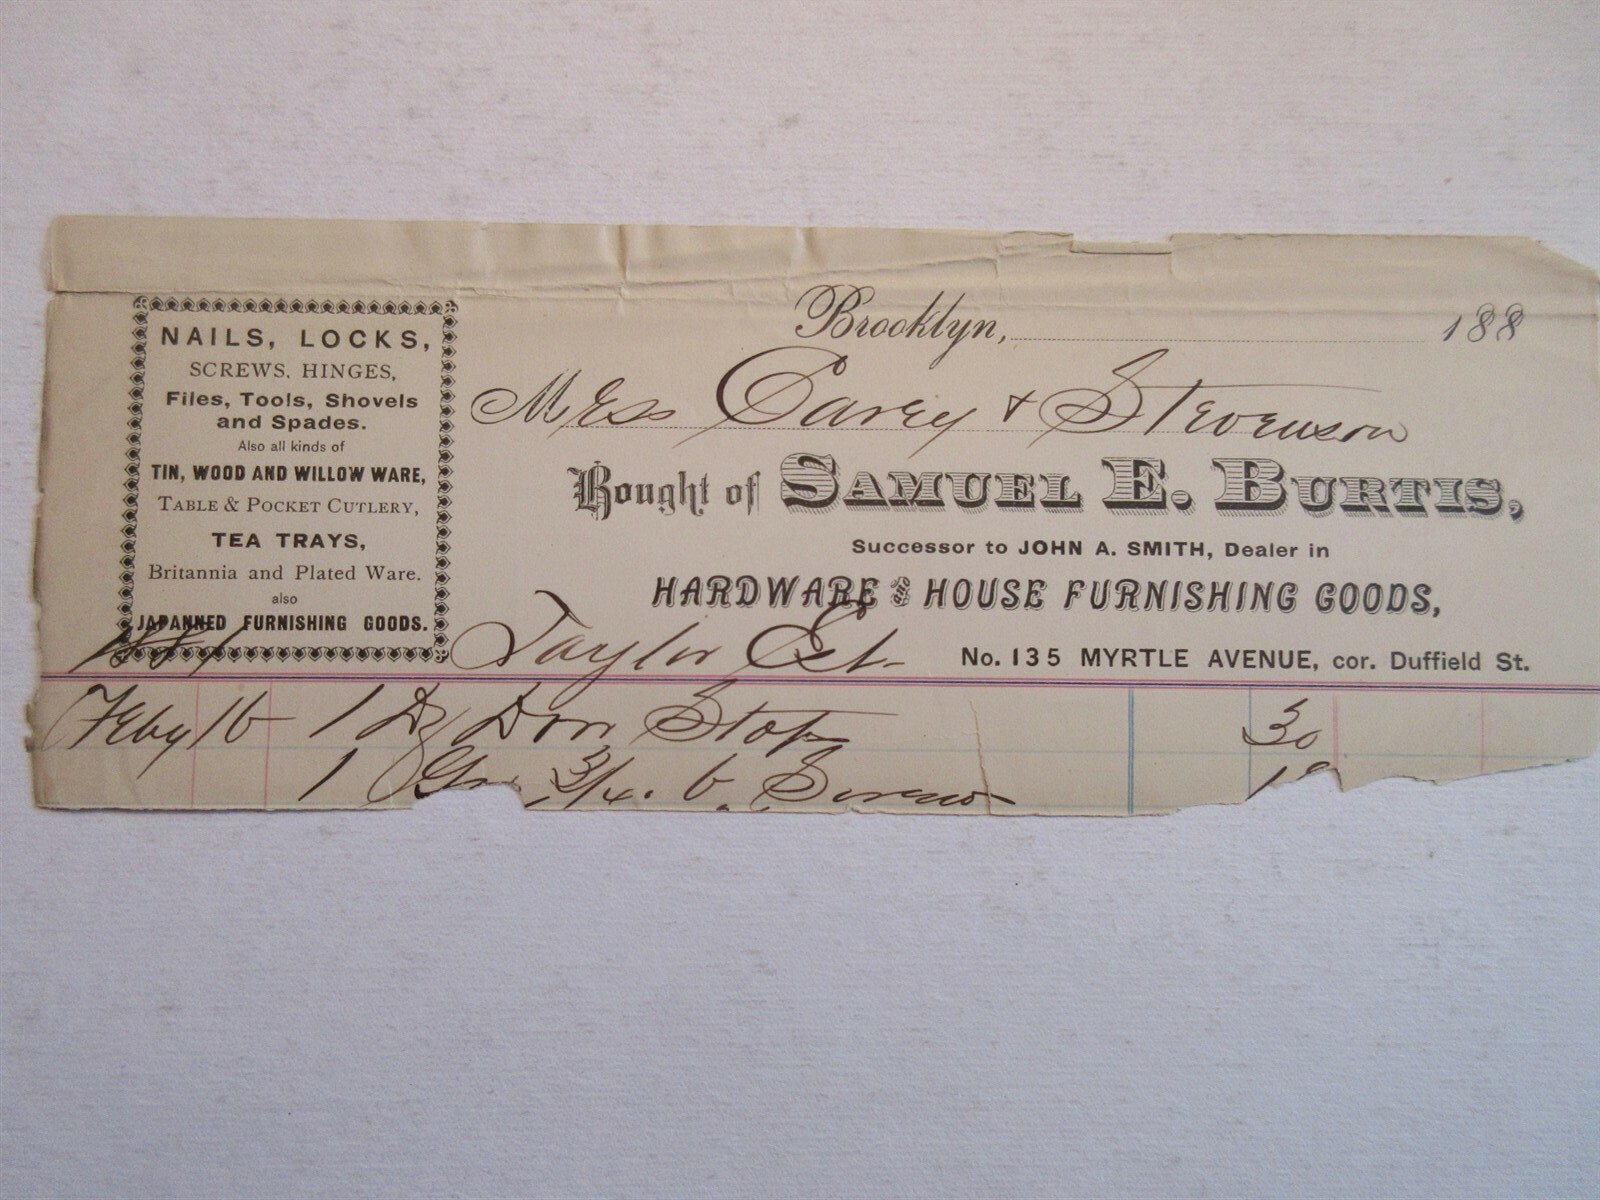 NAILS, LOCKS,
SCREWS. HINGES,
Files, Tools, Shovels
and Spades.
Also all kinds of
TIN, WOOD AND WILLOW WARE,
TABLE & POCKET CUTLERY,
TEA TRAYS,
Britannia and Plated Ware.
also
JAPANNED FURNISHING GOODS.
Brooklyn, 188
Mess Carey & Stevenson
Bought of SAMUEL E. BURTIS,
Successor to JOHN A. SMITH, Dealer in
HARDWARE AND HOUSE FURNISHING GOODS,
Taylor Est. No. 135 MYRTLE AVENUE, cor. Duffield St.
1881
Feby 16 1 Dz Door Stops 30
1 Gro 3/4. 6 Screws